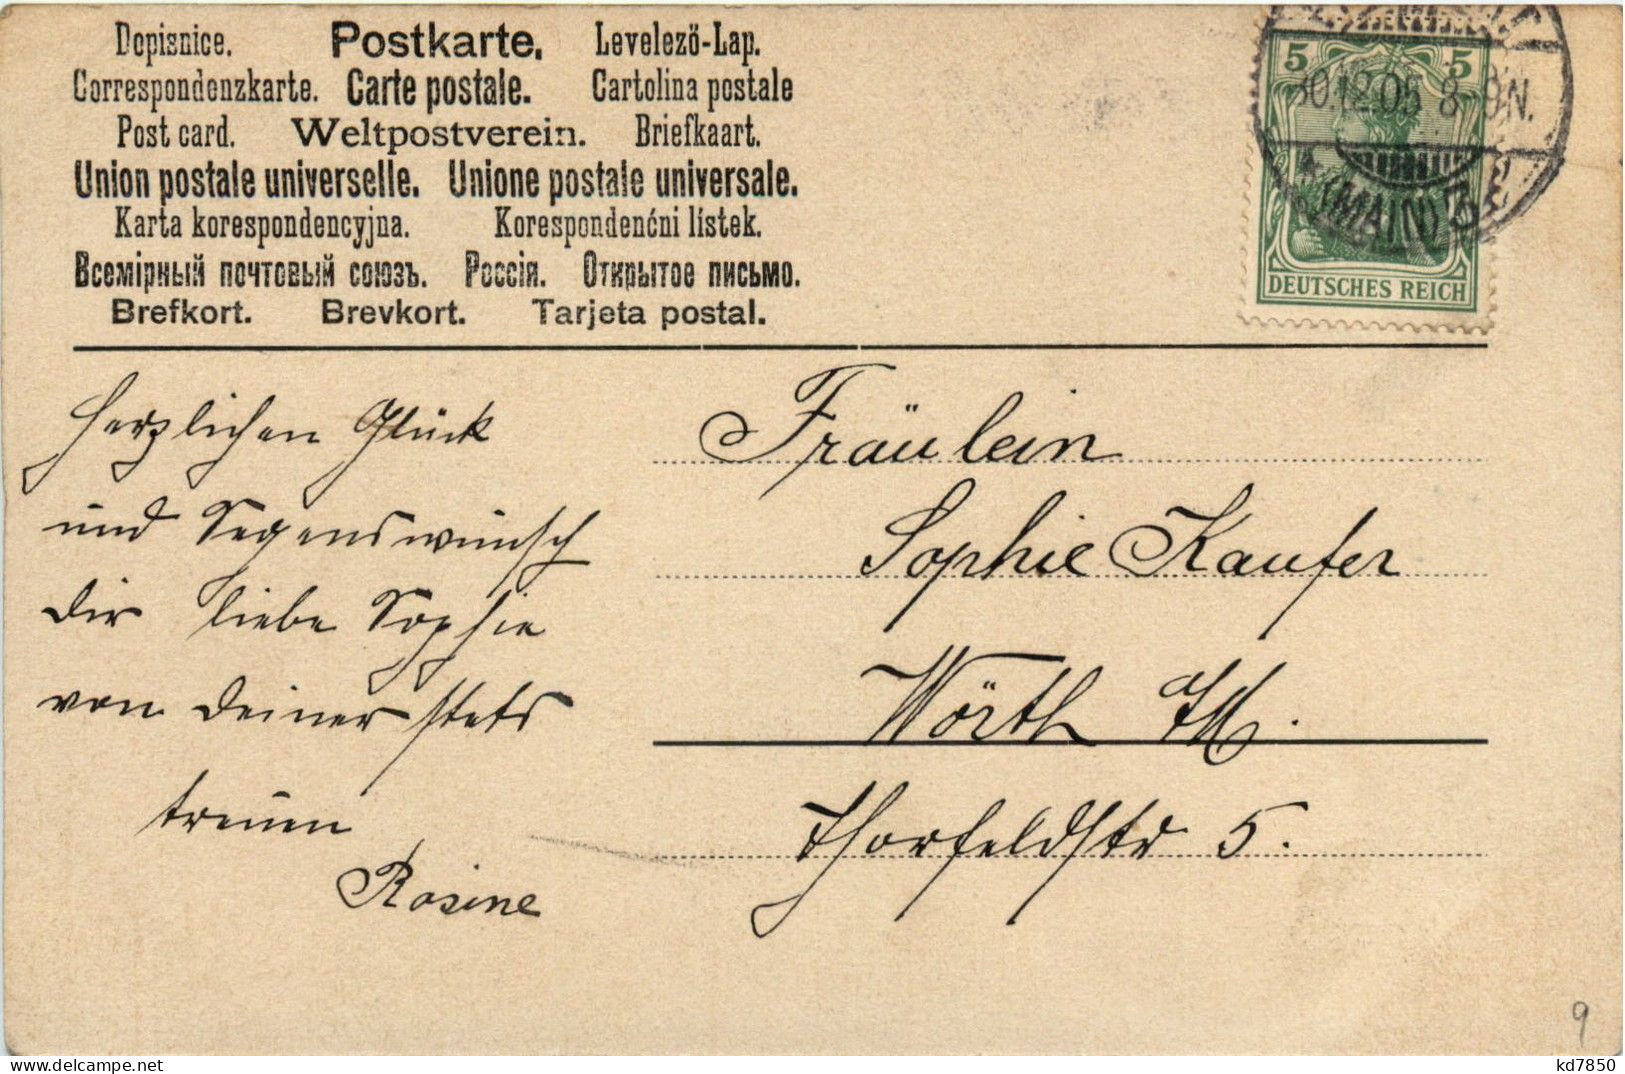 Dopisnice. Postkarte. Levelező-Lap.
Correspondenzkarte. Carte postale. Cartolina postale
Post card. Weltpostverein. Briefkaart.
Union postale universelle. Unione postale universale.
Karta korespondencyjna. Korespondenćni lístek.
Всемірный почтовый союзъ. Россія. Открытое письмо.
Brefkort. Brevkort. Tarjeta postal.
5 5
30.12.05 8-9N.
(MAIN)
DEUTSCHES REICH
Herzlichen Glück
und Segenswunsch
Dir liebe Sophie
von Deiner stets
treuen
Rosine
Fräulein
Sophie Kaufer
Wörth
Thorfeldstr 5.
9
kd7850